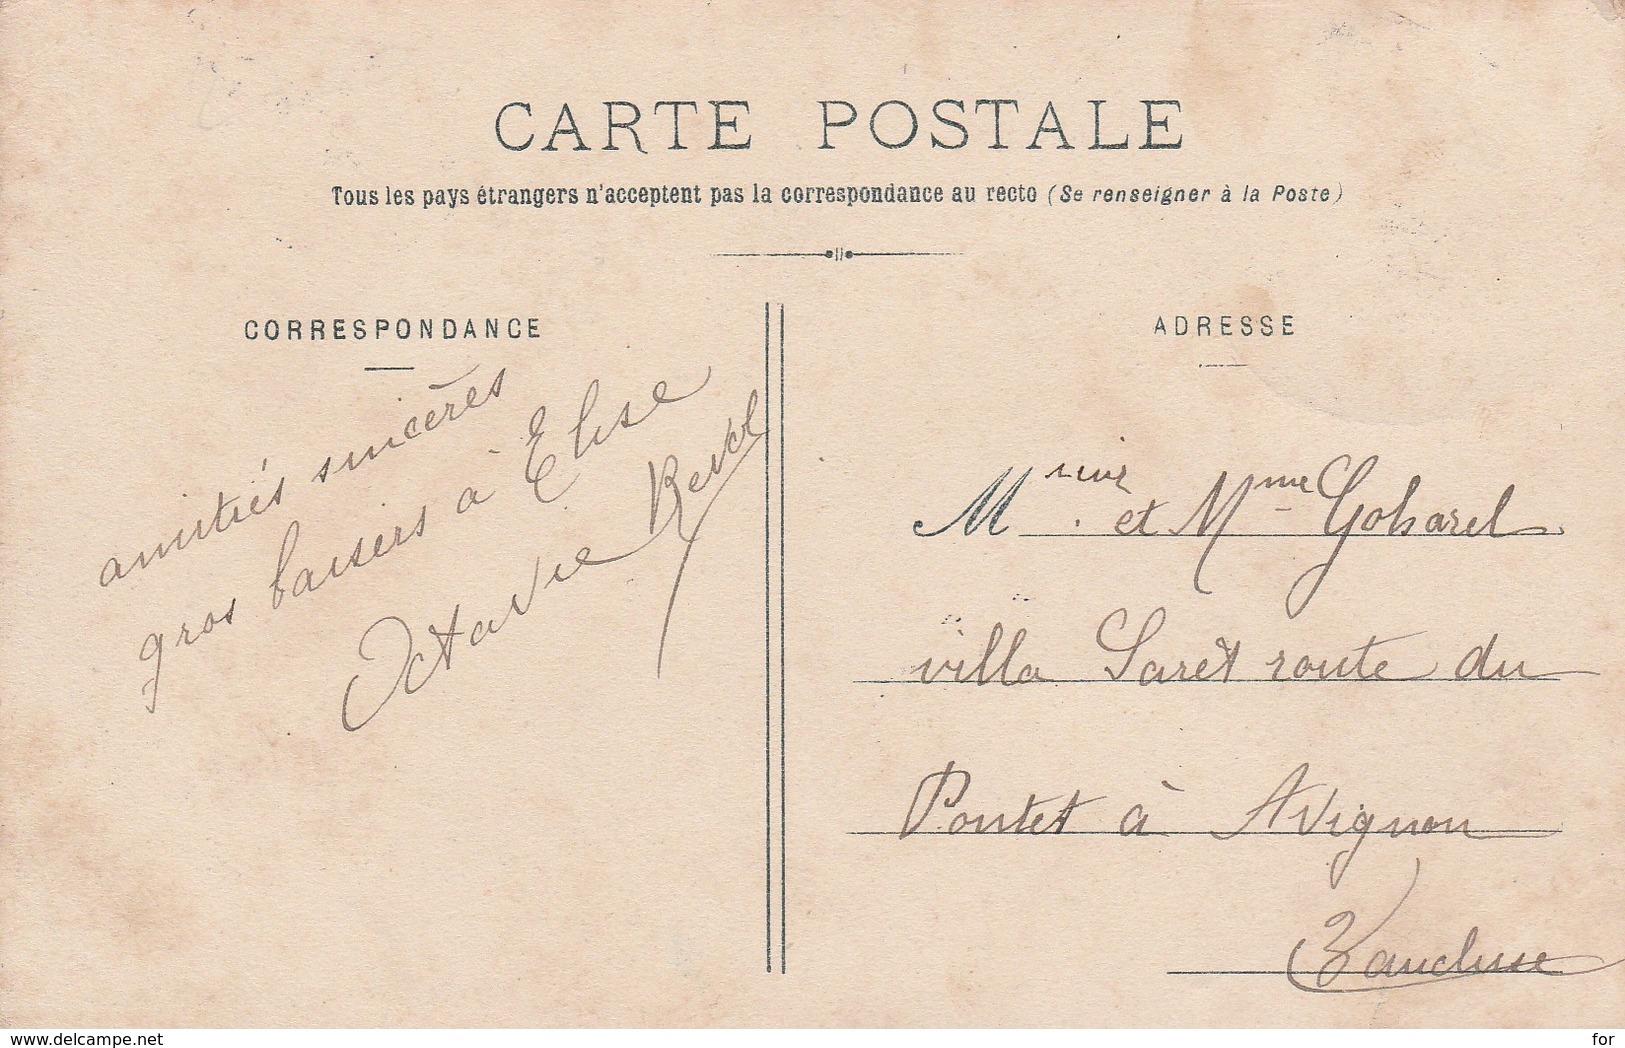 CARTE POSTALE
Tous les pays étrangers n'acceptent pas la correspondance au recto (Se renseigner à la Poste)
CORRESPONDANCE
amitiés sincères
gros baisers à Elise
Octavie
ADRESSE
M et Mme Gobarel
villa Saret route du
Pontet à Avignon
Vaucluse
© delcampe.net
for